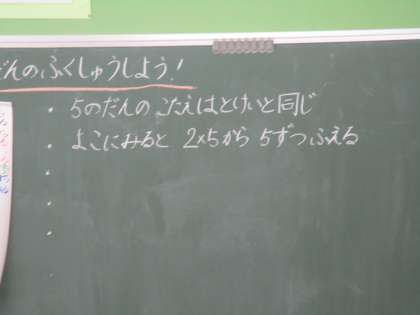 だんのふくしゅうしよう!
・5のだんの こたえはとけいと同じ
・よこにみると 2×5から 5ずつふえる